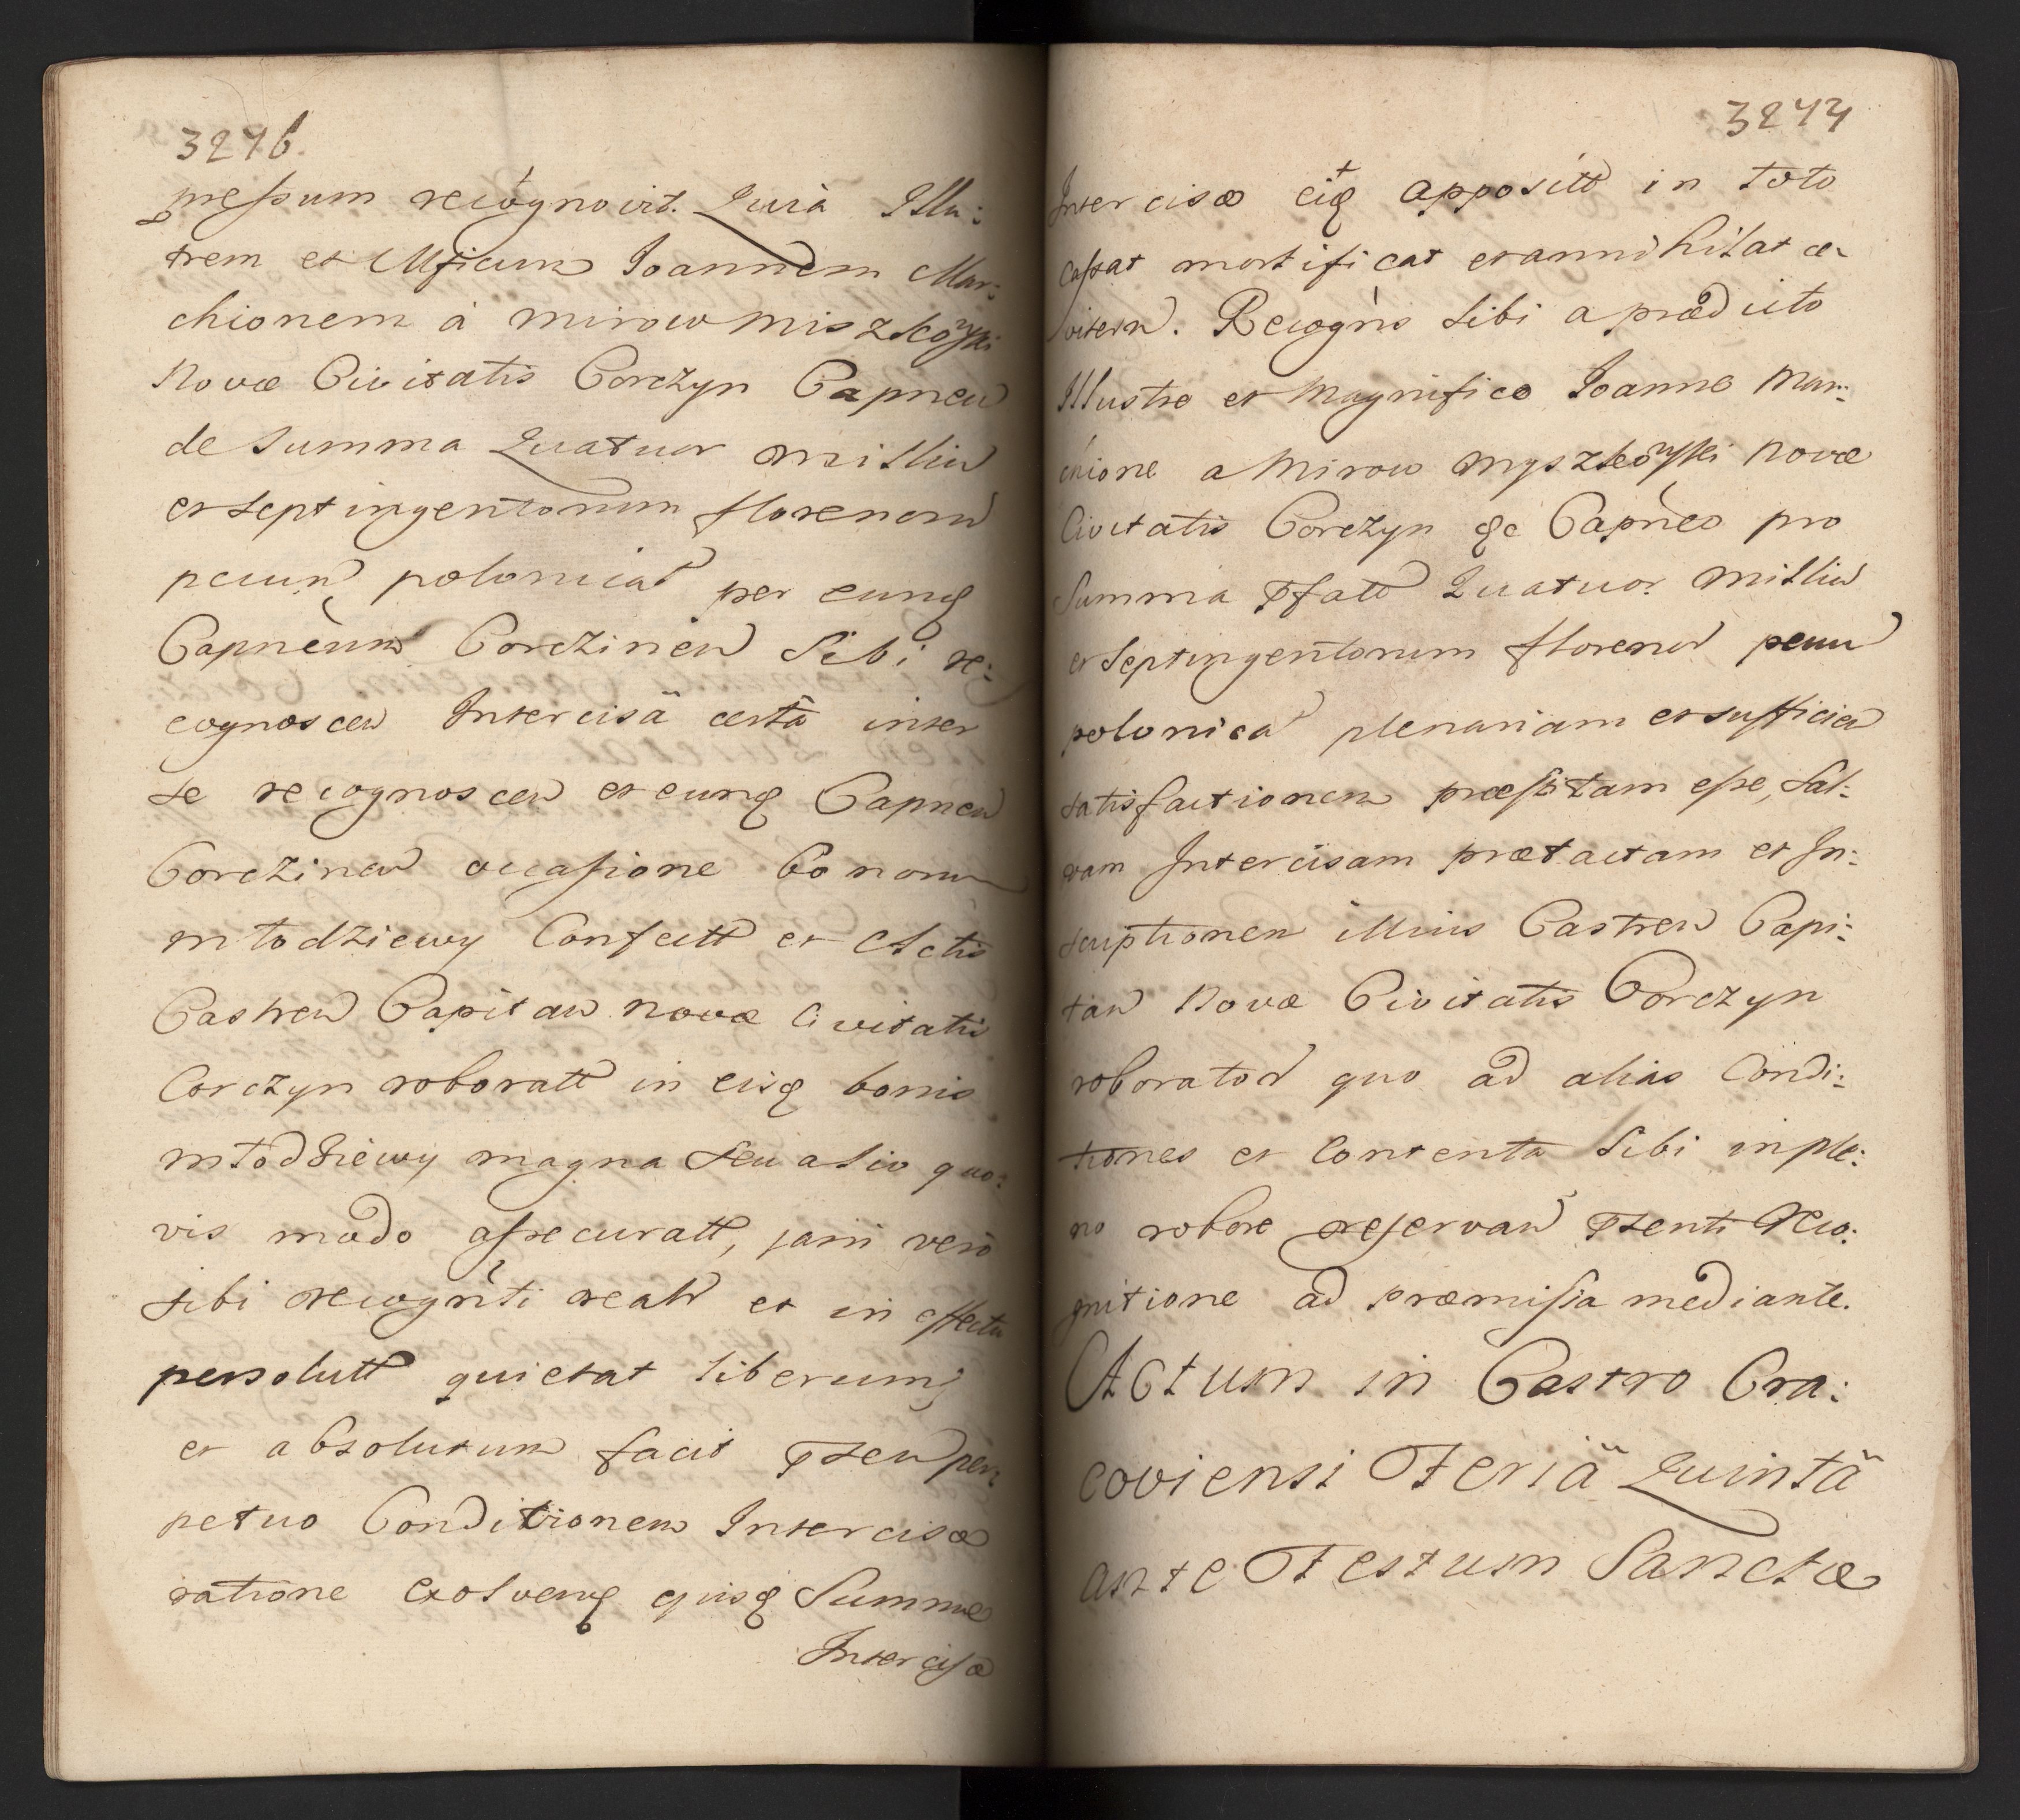 3276.
pressum recognovit. Quia Illu:
trem et Mficum Joannem Mar:
chionem à mirow miszkowski
Novæ Civitatis Corczyn Capneu
de Summa Quatuor milliu
et septingentorum florenoru
pecun polonical per eunq
Capneum Corczinen Sibi re:
cognoscen Intercisä certa inter
se recognoscen et eunq Capneu
Corczinen occasione bonoru
młodziewy Confectt et Actis
Castren Capitan novæ Civitatis
Corczyn roboratt in eisq bonis
młodziewy magna seu alio quo:
vis modo assecuratt, jam vero
sibi recognti realr et in effectu
persolutt quietat liberumq
et absolutum facit pnsen per:
petuo Conditionem Intercisæ
ratione exolvenq ejusq Summæ
Intercisæ
3277
Intercisæ eiq apposite in toto
cassat mortificat et annihilat æ-
vitern. Recogns sibi a prædicto
Illustre et Magnifico Joanne Mar:
chione a Mirow myszkowski Novæ
Civitatis Corczyn &c Capneo pro
Summa pfatt Quatuor milliu
et septingentorum florenor pecun
polonical plenariam et sufficien
satisfactionem præstitam esse, Sal:
vam Intercisam prætactam et In:
scriptionem illius Castren Capi:
tan Novæ Civitatis Corczyn
roborator quo ad alias Condi:
tiones et Contenta Sibi in ple:
no robore reservan pnsenti Reco:
gnitione ad præmissa mediante.
Actum in Castro Cra:
coviensi Feriä Quintä
ante Festum Sanctæ